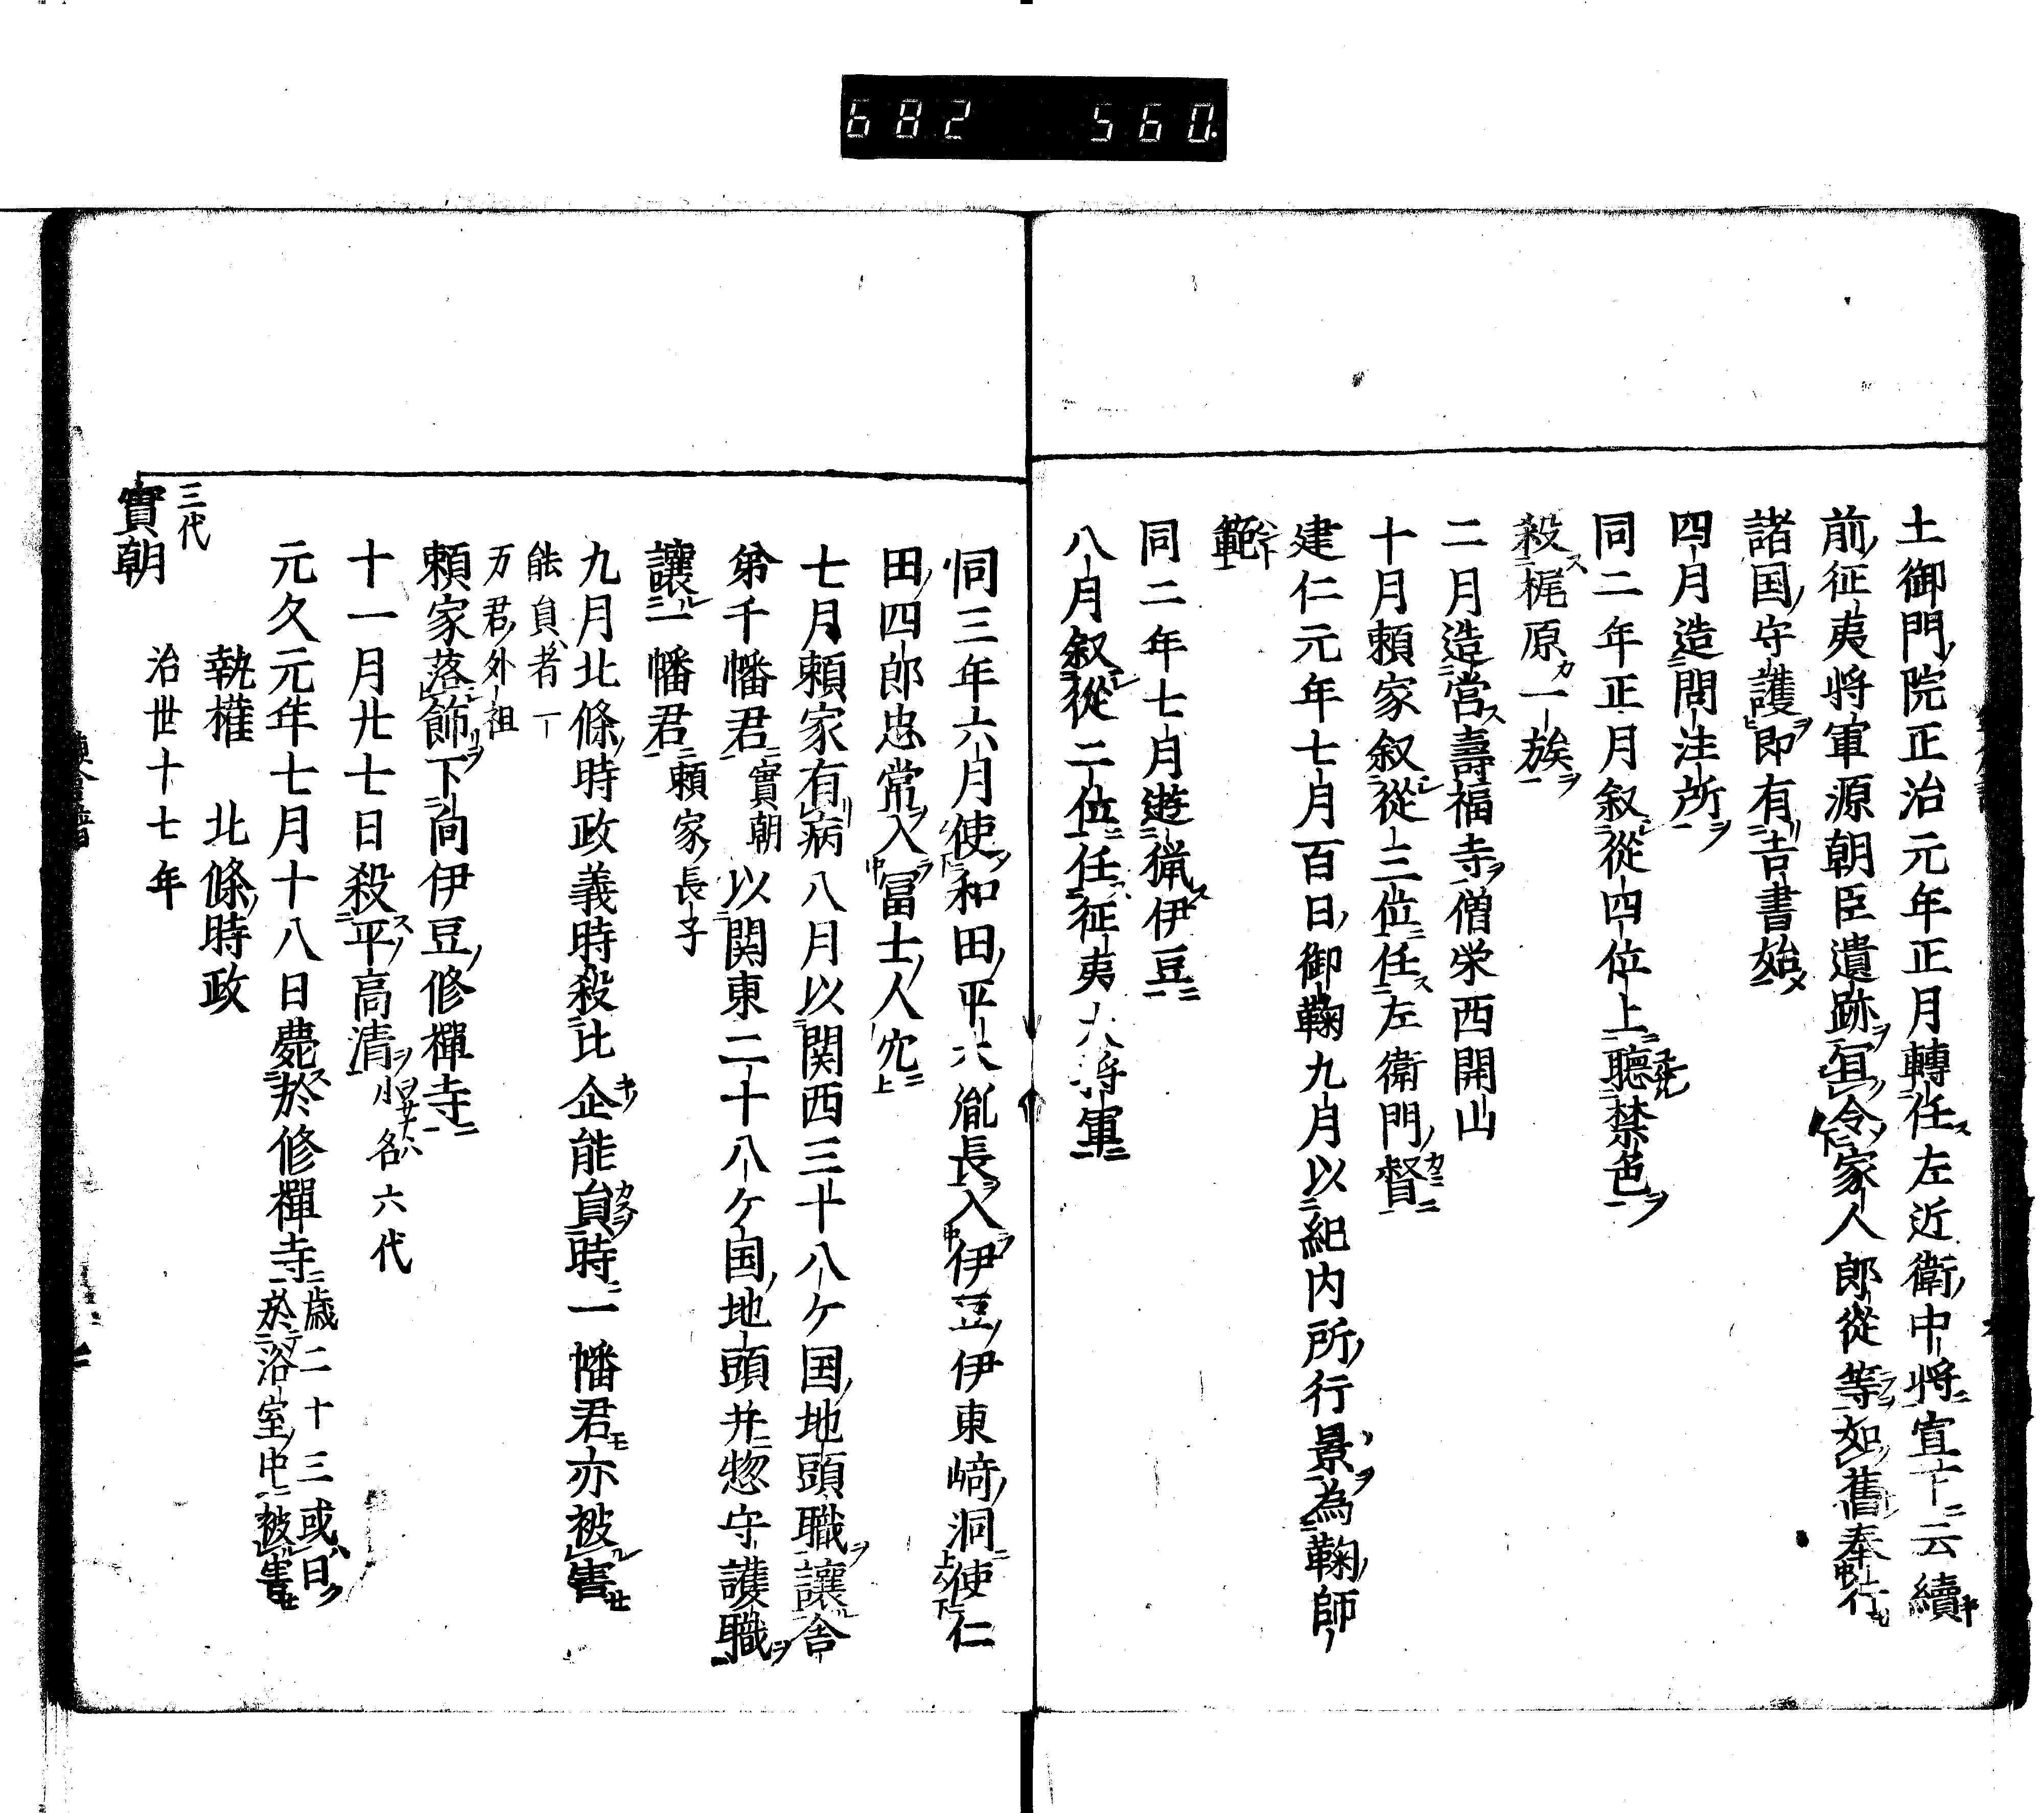 682 560
土御門院正治元年正月轉任左近衛中将宣下云續
前征夷将軍源朝臣遺跡冝令家人郎從等如舊奉行
諸国守護即有吉書始
四月造問注所
同二年正月叙從四位上聽禁色
殺梶原一族
二月造営壽福寺僧栄西開山
十月頼家叙從三位任左衛門督
建仁元年七月百日御鞠九月以紀内所行景為鞠師
範
同二年七月遊猟伊豆
八月叙從二位任征夷大将軍
同三年六月使和田平太胤長入伊豆伊東﨑洞使仁
田四郎忠常入冨士人穴
七月頼家有病八月以関西三十八ケ国地頭職讓舎
弟千幡君實朝以関東二十八ケ国地頭并惣守護職
讓一幡君頼家長子
九月北條時政義時殺比企能員時一幡君亦被害
能員者一
万君外祖
頼家落飾下向伊豆修禪寺
十一月廿七日殺平高清小名六代
元久元年七月十八日薨於修禪寺歳二十三或曰
於浴室中被害
執權 北條時政
三代
實朝 治世十七年